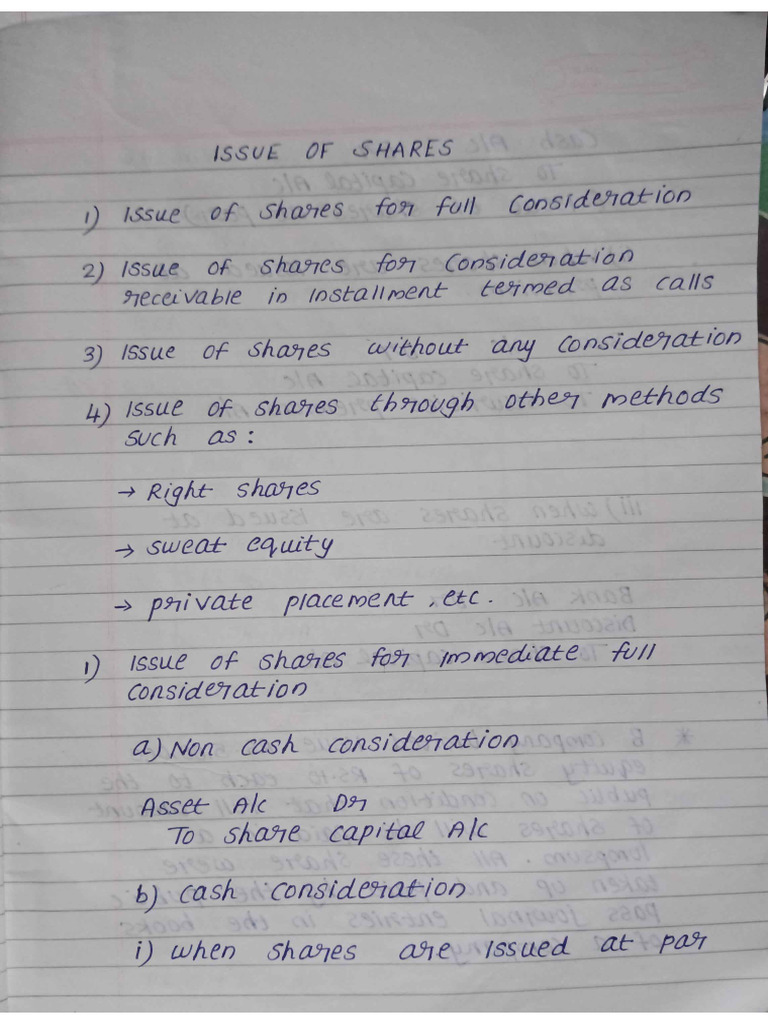 ISSUE OF SHARES
1) Issue of shares for full consideration
2) Issue of shares for consideration
receivable in installment termed as calls
3) Issue of shares without any consideration
4) Issue of shares through other methods
such as :
→ Right shares
→ sweat equity
→ private placement, etc.
1) Issue of shares for immediate full
consideration
a) Non cash consideration
Asset A/c Dr
To share capital A/c
b) cash consideration
i) when shares are issued at par